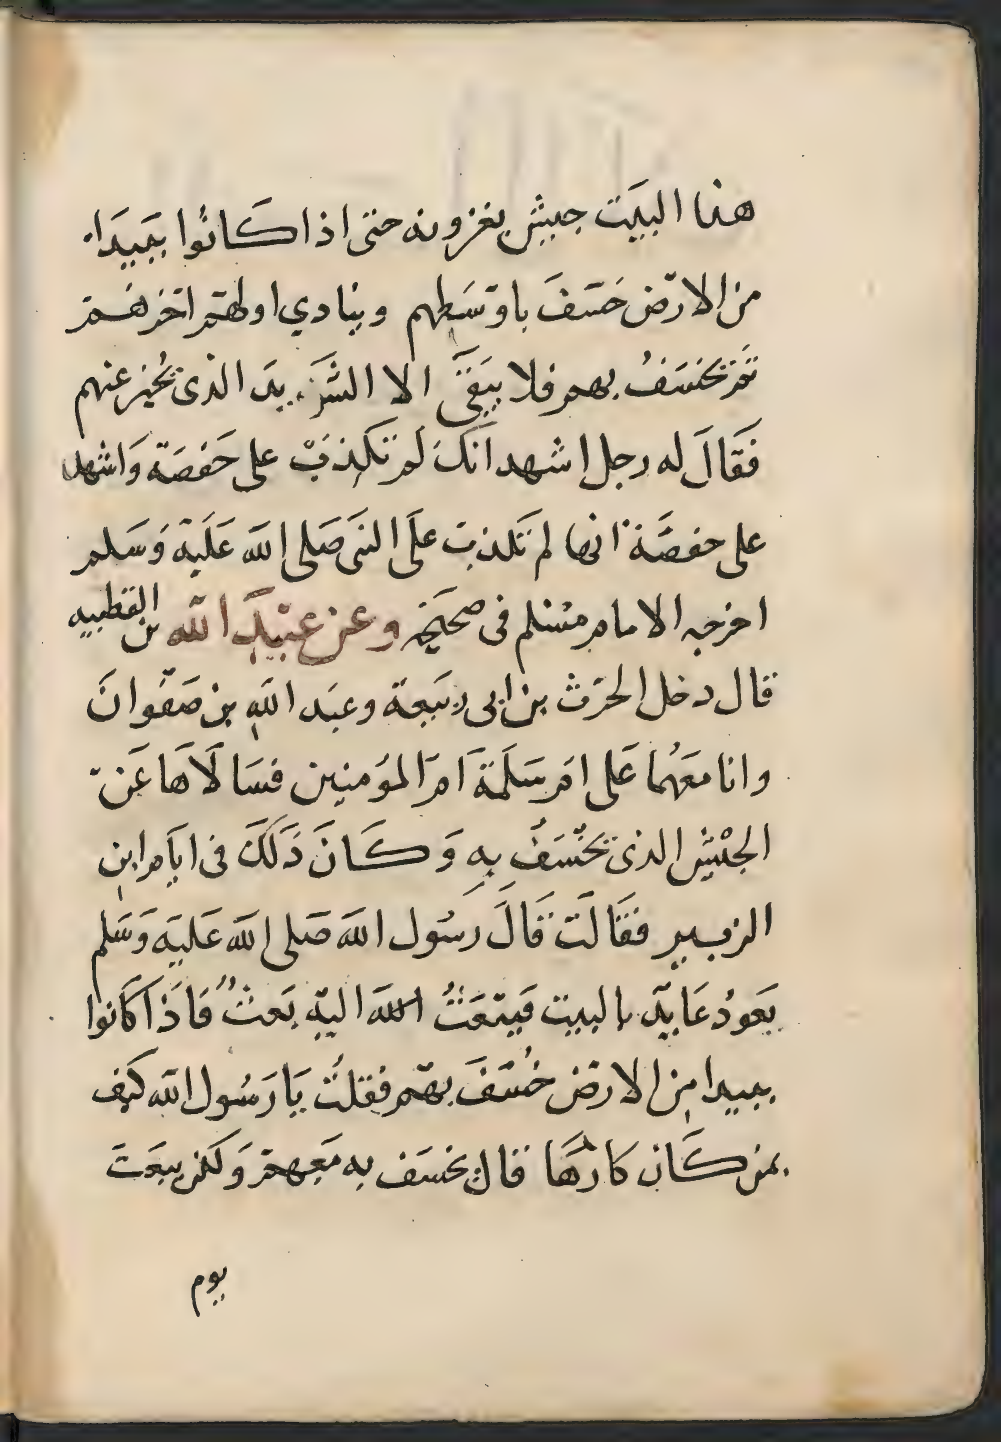 هذا البيت جيش يغزونه حتى اذا كانوا ببيدا
من الارض خسف باوسطهم وينادي اولهم اخرهم
ثم يخسف بهم فلا يبقى الا الشريد الذى يخبر عنهم
فقال له رجل اشهد انك لم تكذب على حفصة واشهد
على حفصة انها لم تكذب على النبى صلى الله عليه وسلم
اخرجه الامام مسلم فى صحيحه وعن عبيد الله بن القطبيه
قال دخل الحرث بن ابى ربيعة وعبد الله بن صفوان
وانا معهما على ام سلمة ام المؤمنين فسالاها عن
الجيش الذى يخسف به وكان ذلك فى ايام ابن
الزبير فقالت قال رسول الله صلى الله عليه وسلم
يعود عايد بالبيت فيبعث الله اليه بعث فاذا كانوا
ببيدا من الارض خسف بهم فقلت يا رسول الله كيف
بمن كان كارها قال يخسف به معهم ولكن يبعث
يوم